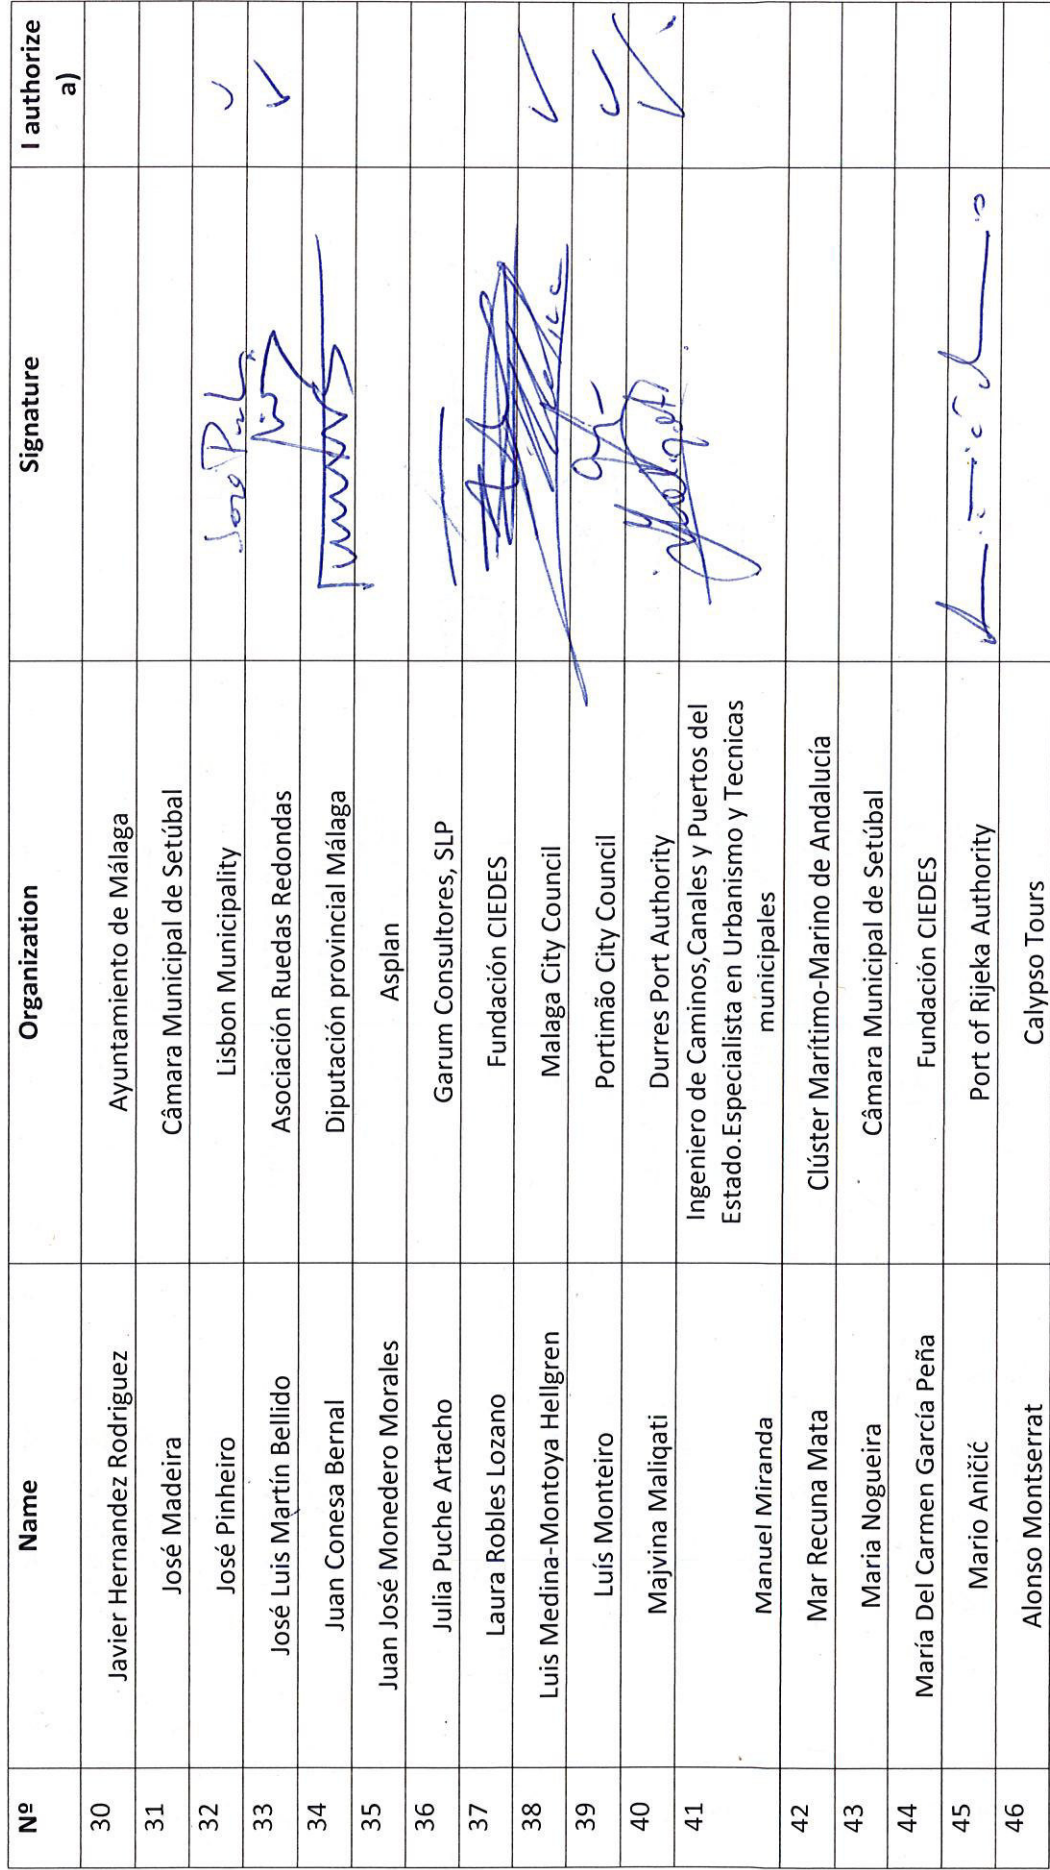 Nº Name Organization Signature I authorize
a)
30 Javier Hernandez Rodriguez Ayuntamiento de Málaga
31 José Madeira Câmara Municipal de Setúbal
32 José Pinheiro Lisbon Municipality
33 José Luis Martín Bellido Asociación Ruedas Redondas
34 Juan Conesa Bernal Diputación provincial Málaga
35 Juan José Monedero Morales Asplan
36 Julia Puche Artacho Garum Consultores, SLP
37 Laura Robles Lozano Fundación CIEDES
38 Luis Medina-Montoya Hellgren Malaga City Council
39 Luís Monteiro Portimão City Council
40 Majvina Maliqati Durres Port Authority
41 Manuel Miranda Ingeniero de Caminos,Canales y Puertos del
Estado.Especialista en Urbanismo y Tecnicas
municipales
42 Mar Recuna Mata Clúster Marítimo-Marino de Andalucía
43 Maria Nogueira Câmara Municipal de Setúbal
44 María Del Carmen García Peña Fundación CIEDES
45 Mario Aničić Port of Rijeka Authority
46 Alonso Montserrat Calypso Tours